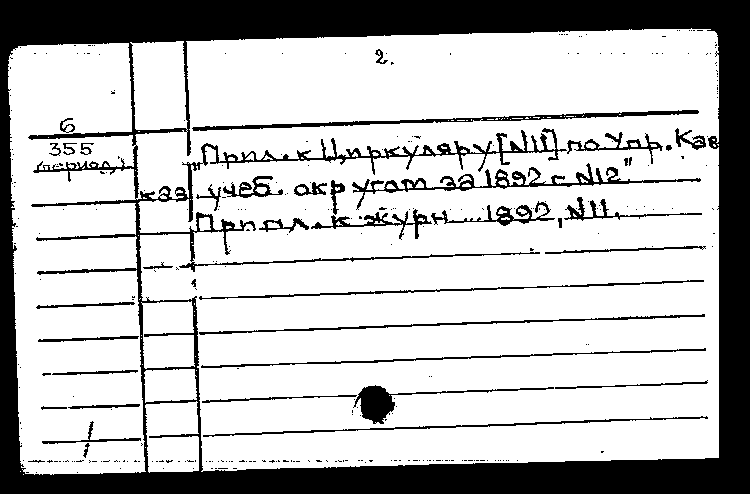 2.
6
355
(период.)
„Прил. к Циркуляру [N11] по Упр. Кав
каз. учеб. округом за 1892 г. N12"
Прил. к журн. ... 1892, N11.